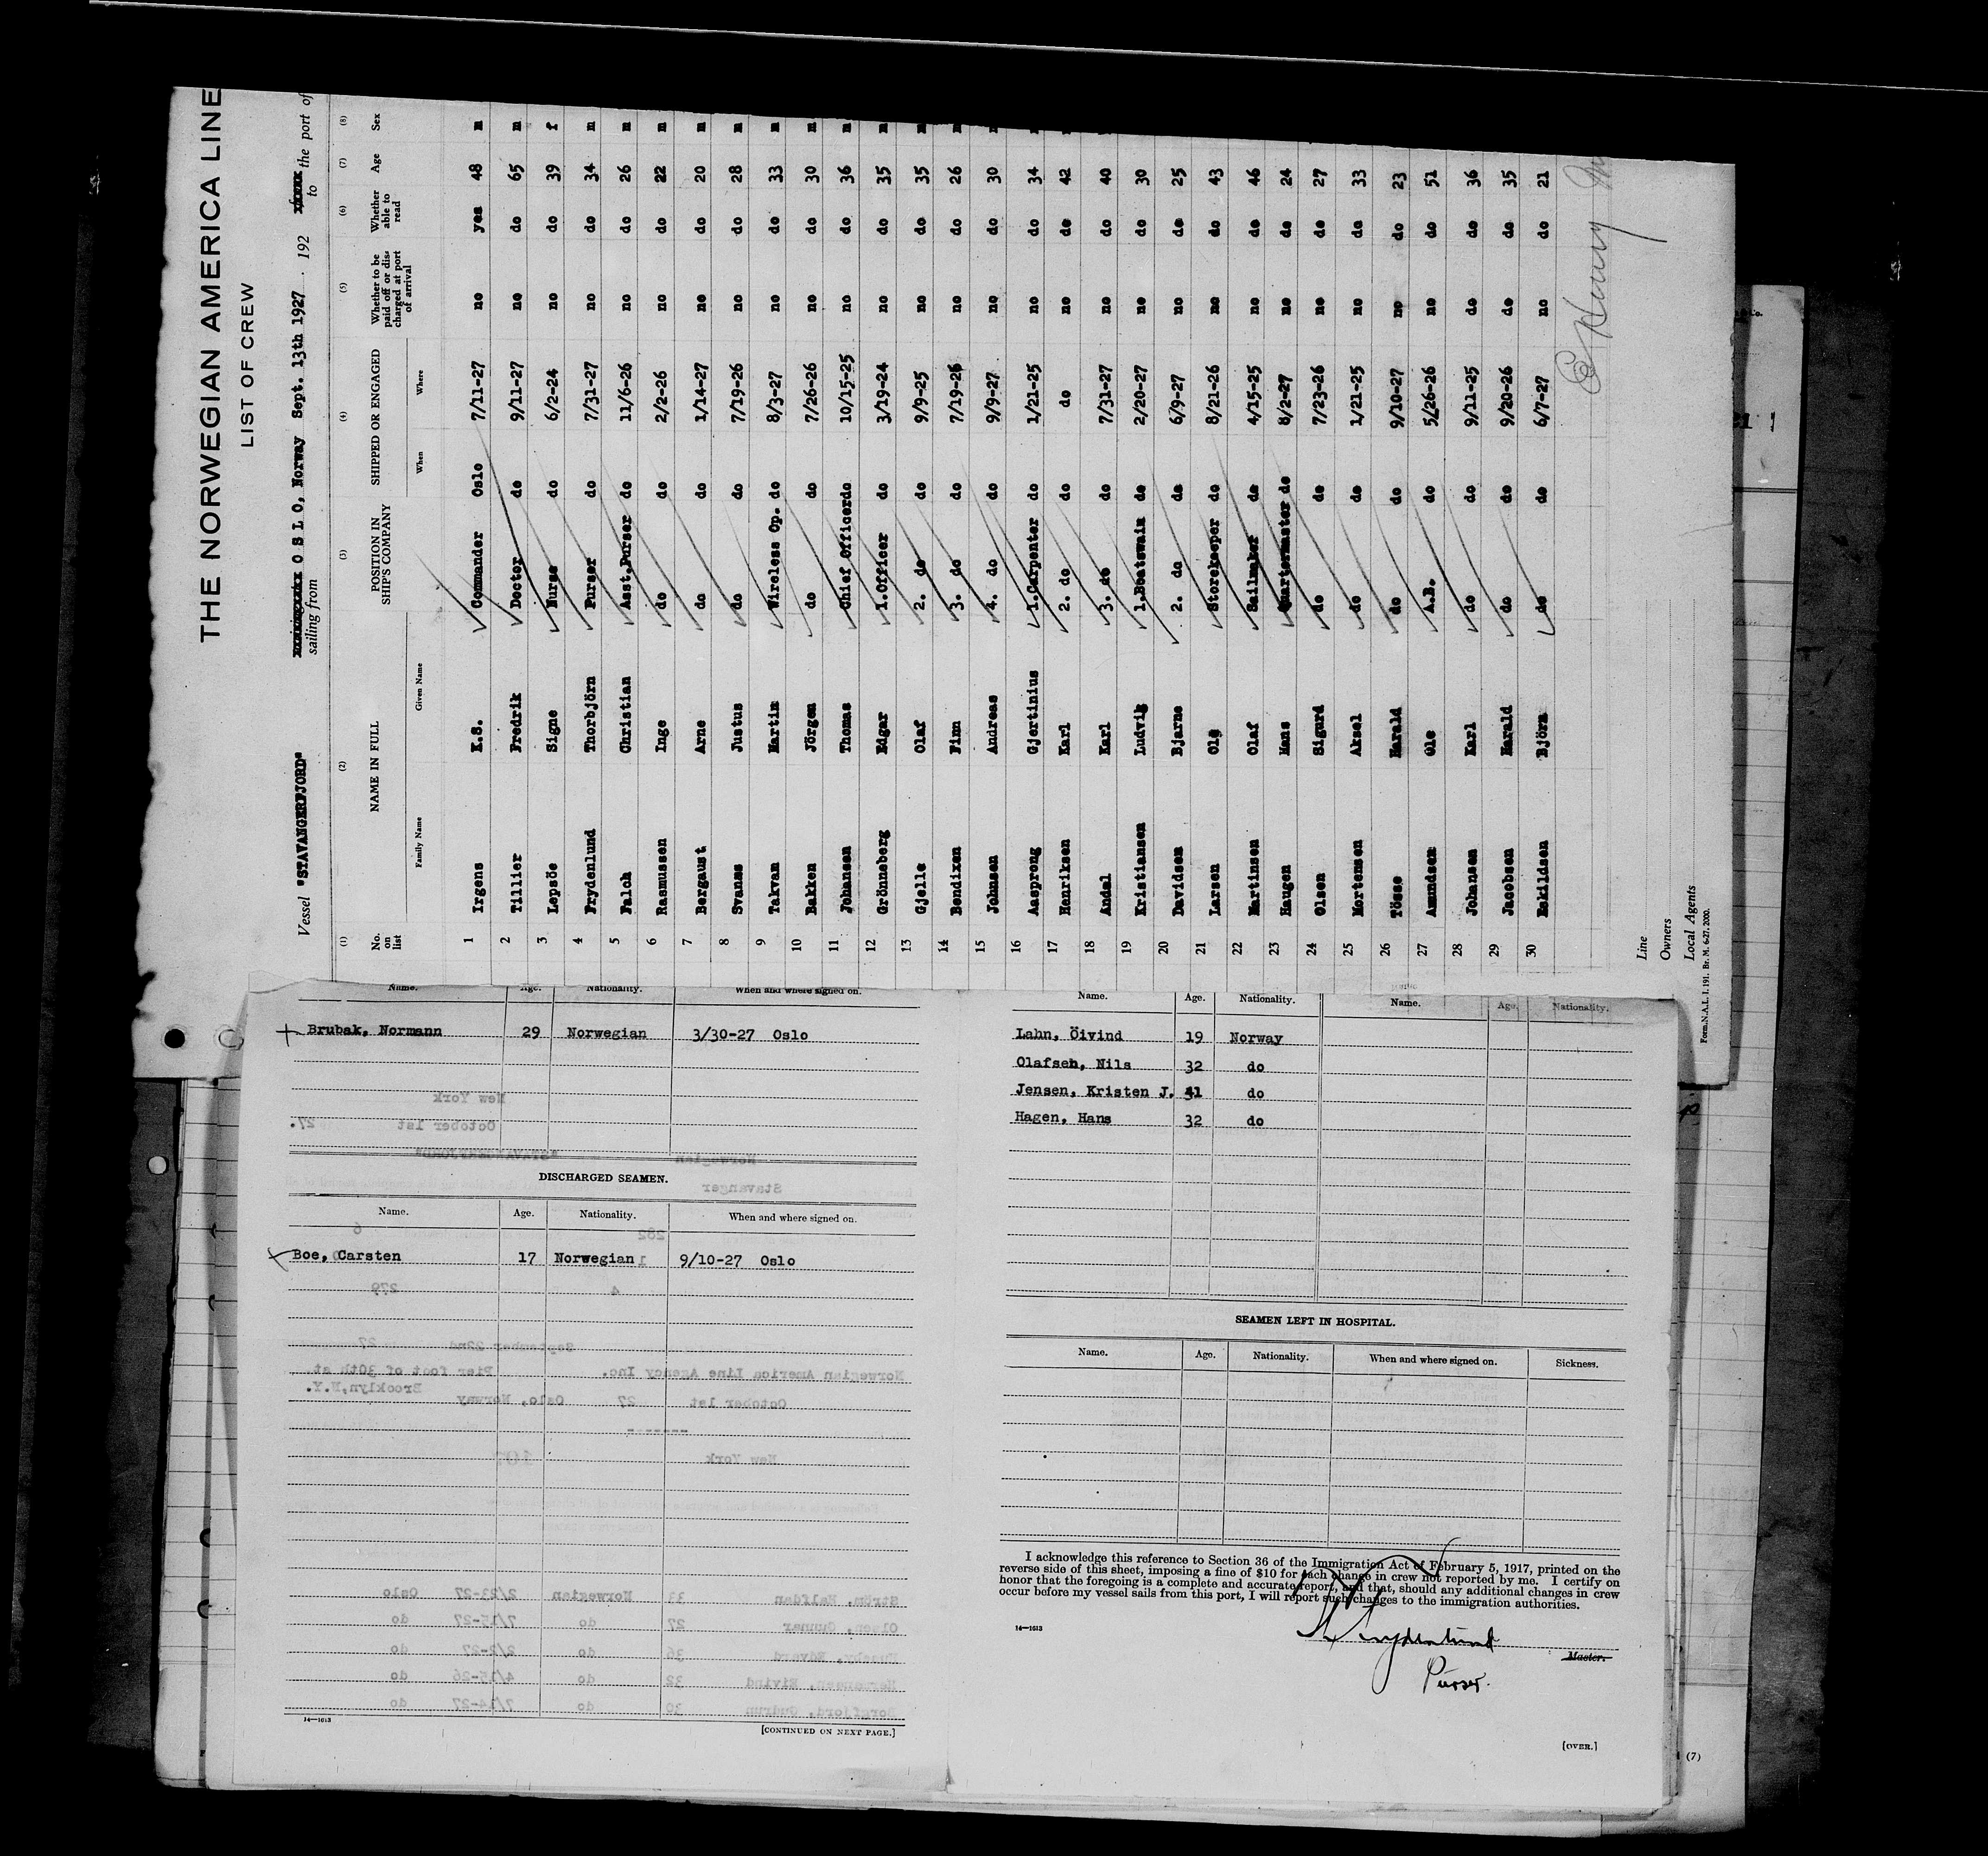 THE NORWEGIAN AMERICA LINE
LIST OF CREW
Vessel "STAVANGERFJORD" sailing from O S L O, Norway Sept. 13th 1927 192 to the port of
(1) (2) (3) (4) (5) (6) (7) (8)
No. on list NAME IN FULL POSITION IN SHIP'S COMPANY SHIPPED OR ENGAGED Whether to be paid off or dis charged at port of arrival Whether able to read Age Sex
Family Name Given Name When Where
1 Irgens K.S. Commander Oslo 7/11-27 no yes 48 m
2 Tillier Fredrik Doctor do 9/11-27 no do 65 m
3 Lepsöe Signe Nurse do 6/2-24 no do 39 f
4 Frydenlund Thorbjörn Purser do 7/31-27 no do 34 m
5 Falch Christian Asst.Purser do 11/6-26 no do 26 m
6 Rasmussen Inge do do 2/2-26 no do 22 m
7 Bergaust Arne do do 1/14-27 no do 20 m
8 Svanæs Justus do do 7/19-26 no do 28 m
9 Takvam Martin Wireless Op. do 8/3-27 no do 33 m
10 Bakken Jörgen do do 7/26-26 no do 30 m
11 Johansen Thomas Chief Officer do 10/15-25 no do 36 m
12 Grönneberg Edgar 1.Officer do 3/19-24 no do 35 m
13 Gjelle Olaf 2. do do 9/9-25 no do 35 m
14 Bendixen Finn 3. do do 7/19-26 no do 26 m
15 Johnsen Andreas 4. do do 9/9-27 no do 30 m
16 Aasprong Gjertinius 1.Carpenter do 1/21-25 no do 34
17 Henriksen Karl 2. do do do no do 42
18 Andal Karl 3. do do 7/31-27 no do 40
19 Kristiansen Ludvig 1.Boatswain do 2/20-27 no do 30
20 Davidsen Bjarne 2. do do 6/9-27 no do 25
21 Larsen Ole Storekeeper do 8/21-26 no do 43
22 Martinsen Olaf Sailmaker do 4/15-25 no do 46
23 Haugen Hans Quartermaster do 8/2-27 no do 24
24 Olsen Sigurd do do 7/23-26 no do 27
25 Mortensen Aksel do do 1/21-25 no do 33
26 Tösse Harald do do 9/10-27 no do 23
27 Amundsen Ole A.B. do 5/26-26 no do 51
28 Johansen Karl do do 9/11-25 do do 36
29 Jacobsen Harald do do 9/20-26 do do 35
30 Eskildsen Björn do do 6/7-27 no do 21
Henry
Line
Owners
Local Agents
Form.N.A.L. I. 191. Br. M. 6-27. 2000.
Name. Age. Nationality. When and where signed on.
Brubak, Normann 29 Norwegian 3/30-27 Oslo
DISCHARGED SEAMEN.
Name. Age. Nationality. When and where signed on.
Boe, Carsten 17 Norwegian 9/10-27 Oslo
14—1613
[CONTINUED ON NEXT PAGE.]
Name. Age. Nationality. Name. Age. Nationality.
Lahn, Öivind 19 Norway
Olafsen, Nils 32 do
Jensen, Kristen J. 41 do
Hagen, Hans 32 do
SEAMEN LEFT IN HOSPITAL.
Name. Age. Nationality. When and where signed on. Sickness.
I acknowledge this reference to Section 36 of the Immigration Act of February 5, 1917, printed on the
reverse side of this sheet, imposing a fine of $10 for each change in crew not reported by me. I certify on
honor that the foregoing is a complete and accurate report, and that, should any additional changes in crew
occur before my vessel sails from this port, I will report such changes to the immigration authorities.
14—1613
Frydenlund
Master.
Purser.
[OVER.]
(7)